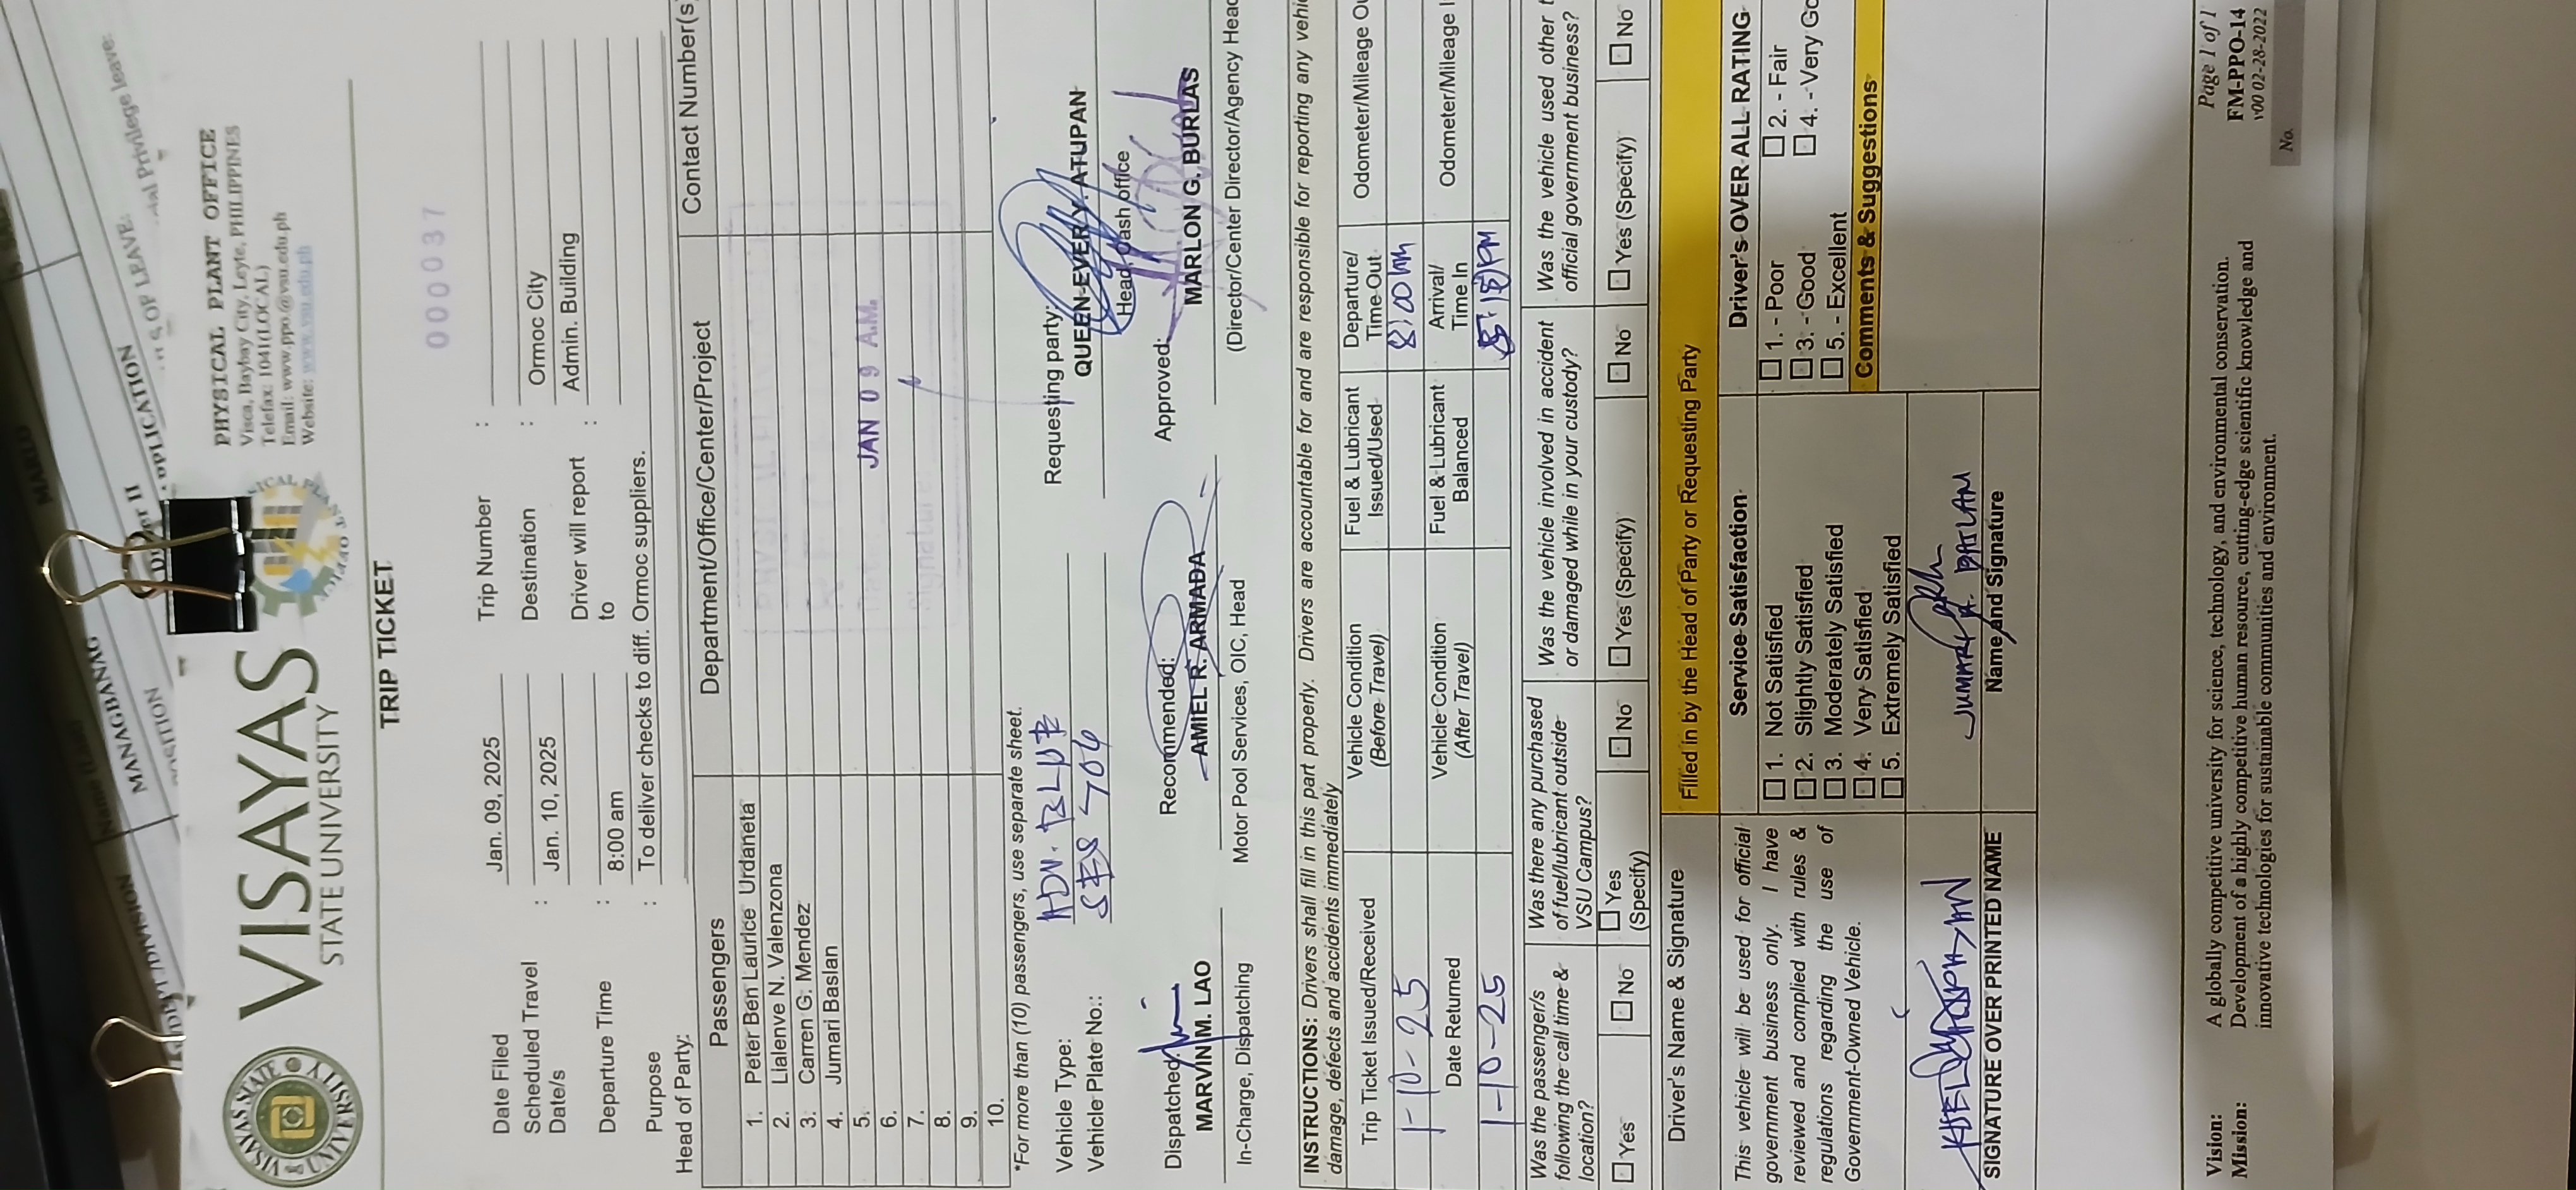 MANAGBANAG
DEPT./DIVISION
POSITION
VISAYAS
STATE UNIVERSITY
PHYSICAL PLANT OFFICE
Visca, Baybay City, Leyte, PHILIPPINES
Telefax: 1041(LOCAL)
Email: www.ppo.@vsu.edu.ph
Website: www.vsu.edu.ph
TRIP TICKET
000037
Date Filed Jan. 09, 2025 Trip Number :
Scheduled Travel Date/s : Jan. 10, 2025 Destination : Ormoc City
Departure Time : 8:00 am Driver will report to : Admin. Building
Purpose : To deliver checks to diff. Ormoc suppliers.
Head of Party:
Passengers Department/Office/Center/Project Contact Number(s
1. Peter Ben Laurice Urdaneta
2. Lialenve N. Valenzona
3. Carren G. Mendez
4. Jumari Baslan
5. JAN 09 A.M.
6.
7.
8.
9.
10.
*For more than (10) passengers, use separate sheet.
Vehicle Type: ADV. BLUE
Vehicle Plate No.: SES 706
Requesting party:
QUEEN-EVER Y. ATUPAN
Head, Cash office
Dispatched: Recommended: Approved:
MARVIN M. LAO AMIEL R. ARMADA MARLON G. BURLAS
In-Charge, Dispatching Motor Pool Services, OIC, Head (Director/Center Director/Agency Head
INSTRUCTIONS: Drivers shall fill in this part properly. Drivers are accountable for and are responsible for reporting any vehic
damage, defects and accidents immediately
Trip Ticket Issued/Received Vehicle Condition (Before Travel) Fuel & Lubricant Issued/Used Departure/ Time Out Odometer/Mileage Ou
1-10-25 8:00 AM
Date Returned Vehicle Condition (After Travel) Fuel & Lubricant Balanced Arrival/ Time In Odometer/Mileage I
1-10-25
Was the passenger/s following the call time & location?
Yes No
Was there any purchased of fuel/lubricant outside VSU Campus?
Yes (Specify) No
Was the vehicle involved in accident or damaged while in your custody?
Yes (Specify) No
Was the vehicle used other t
official government business?
Yes (Specify) No
Driver's Name & Signature
This vehicle will be used for official
government business only. I have
reviewed and complied with rules &
regulations regarding the use of
Government-Owned Vehicle.
SIGNATURE OVER PRINTED NAME
Filled in by the Head of Party or Requesting Party
Service Satisfaction
1. Not Satisfied
2. Slightly Satisfied
3. Moderately Satisfied
4. Very Satisfied
5. Extremely Satisfied
JUMARI R. BASLAN
Name and Signature
Driver's OVER ALL RATING
1. - Poor 2. - Fair
3. - Good 4. - Very Go
5. - Excellent
Comments & Suggestions
Vision: A globally competitive university for science, technology, and environmental conservation.
Mission: Development of a highly competitive human resource, cutting-edge scientific knowledge and
innovative technologies for sustainable communities and environment.
Page 1 of 1
FM-PPO-14
v00 02-28-2022
No.